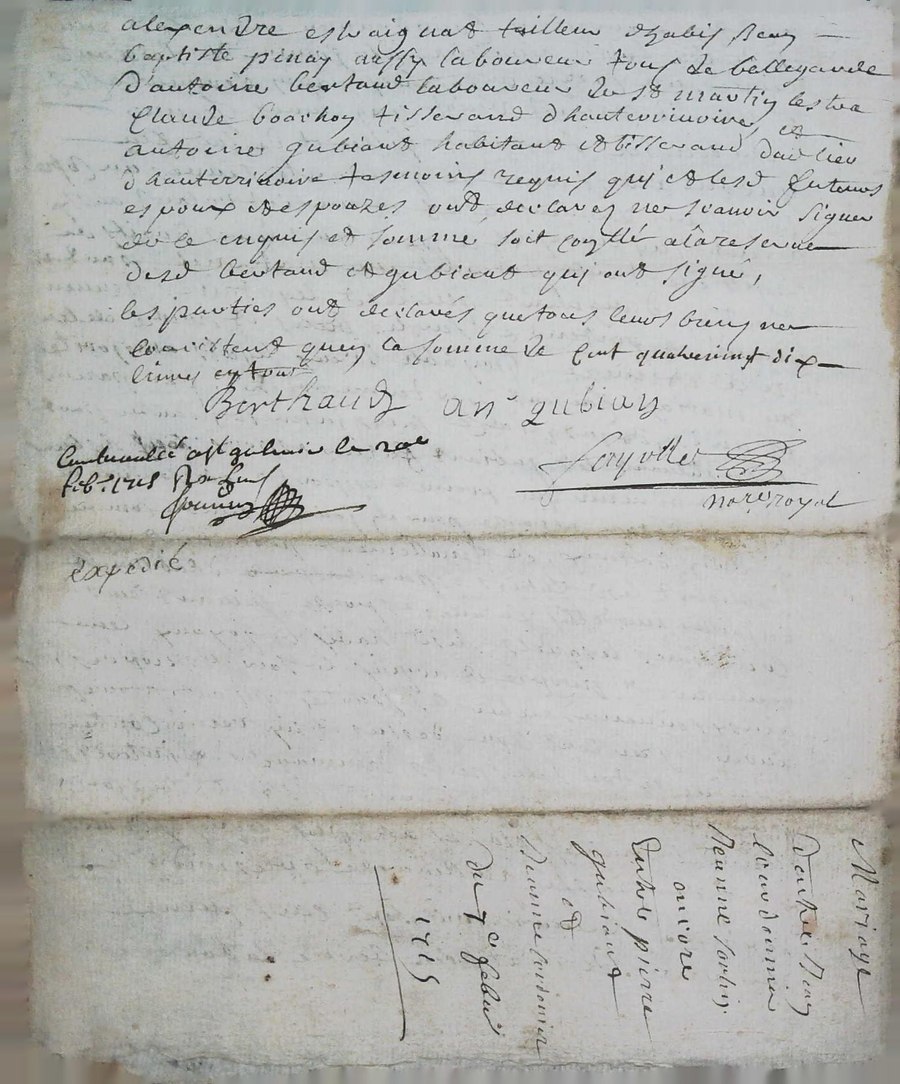 alexendre esvaignat tailleur dhabis Jean
baptiste pinay aussy laboureur tous de bellegarde
d'antoine bertaud laboureur de st martin lestra
Claude bouchon tisserand d'hauterivoire, et
antoine gubiant habitant et tisserand dud lieu
d'hauterivoire tesmoins requis qui et lesd futurs
espoux et espouzes ont declares ne scavoir signer
de ce enquis et somme soit à la reserve
desd bertaud et gubiant qui ont signé,
les parties ont declarés que tous leurs biens ne
consistent qu'en la somme de cent quatrevingt dix
livres en tout
Berthaud an gubian
Controullé a le
feb. 1715 Fayolle
nore royal
éxpedié
Mariage
d'entre Jean
Jeanne
encore
Entre pierre
gubiant
et
Jeanne
du 7e febvr
1715